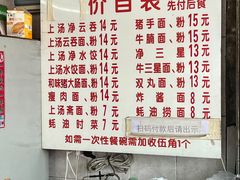 价目表
先付后食
上汤云吞 14元
上汤云吞面、粉 14元
上汤净水饺 14元
上汤水饺面、粉 14元
和味猪大肠面、粉 14元
瘦肉面、粉 14元
上汤斋面、粉 7元
蚝油时菜 7元
猪手面、粉 15元
牛腩面、粉 15元
净三星 13元
牛三星面、粉 13元
双丸面、粉 13元
炸酱面 8元
蚝油捞面 8元
扫码付款后请出示
如需一次性餐碗需加收伍角1个